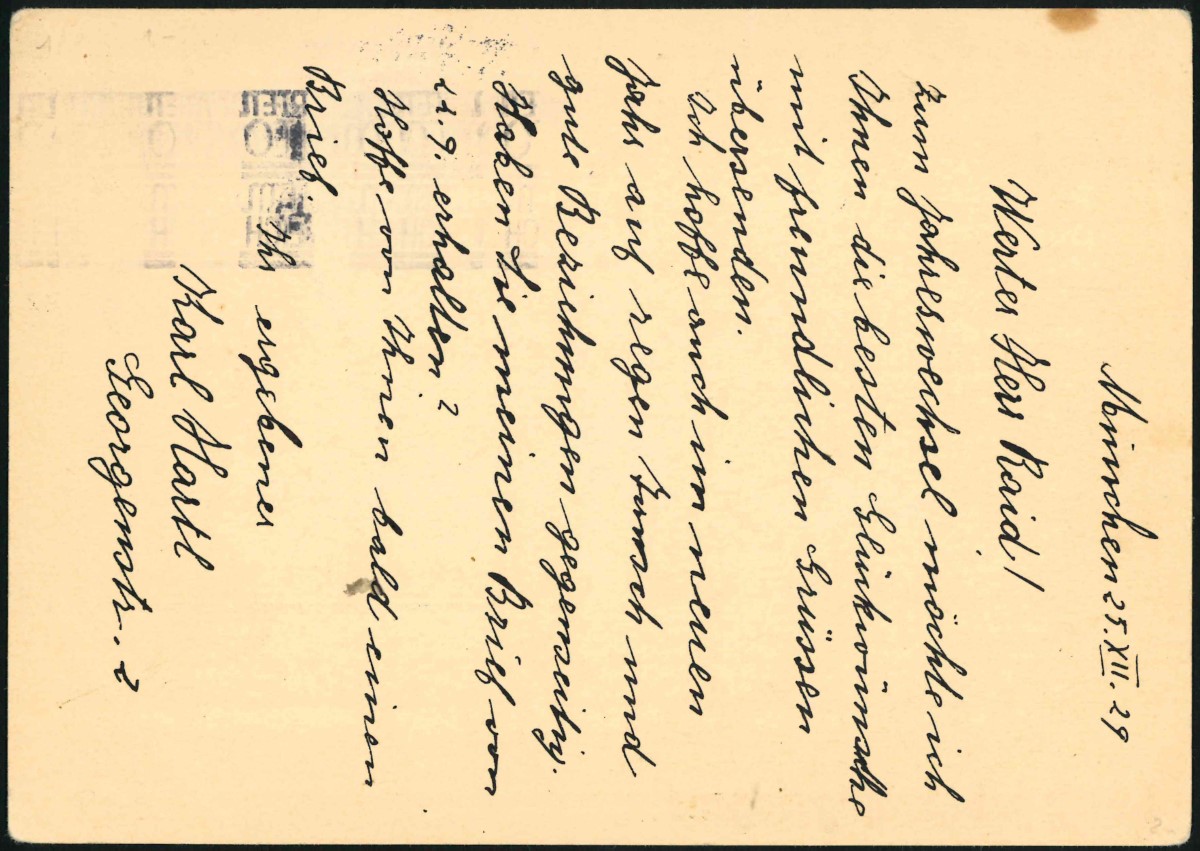 München 25. XII. 29
Werter Herr Raid!
Zum Jahreswechsel möchte ich
Ihnen die besten Glückwünsche
mit freundlichen Grüssen
übersenden.
Ich hoffe auch im neuen
Jahr auf regen Tausch und
gute Beziehungen gegenseitig.
Haben Sie meinen Brief von
22.9. erhalten?
Hoffe von Ihnen bald einen
Brief.
Ihr ergebener
Karl Hartl
Georgenstr. 2